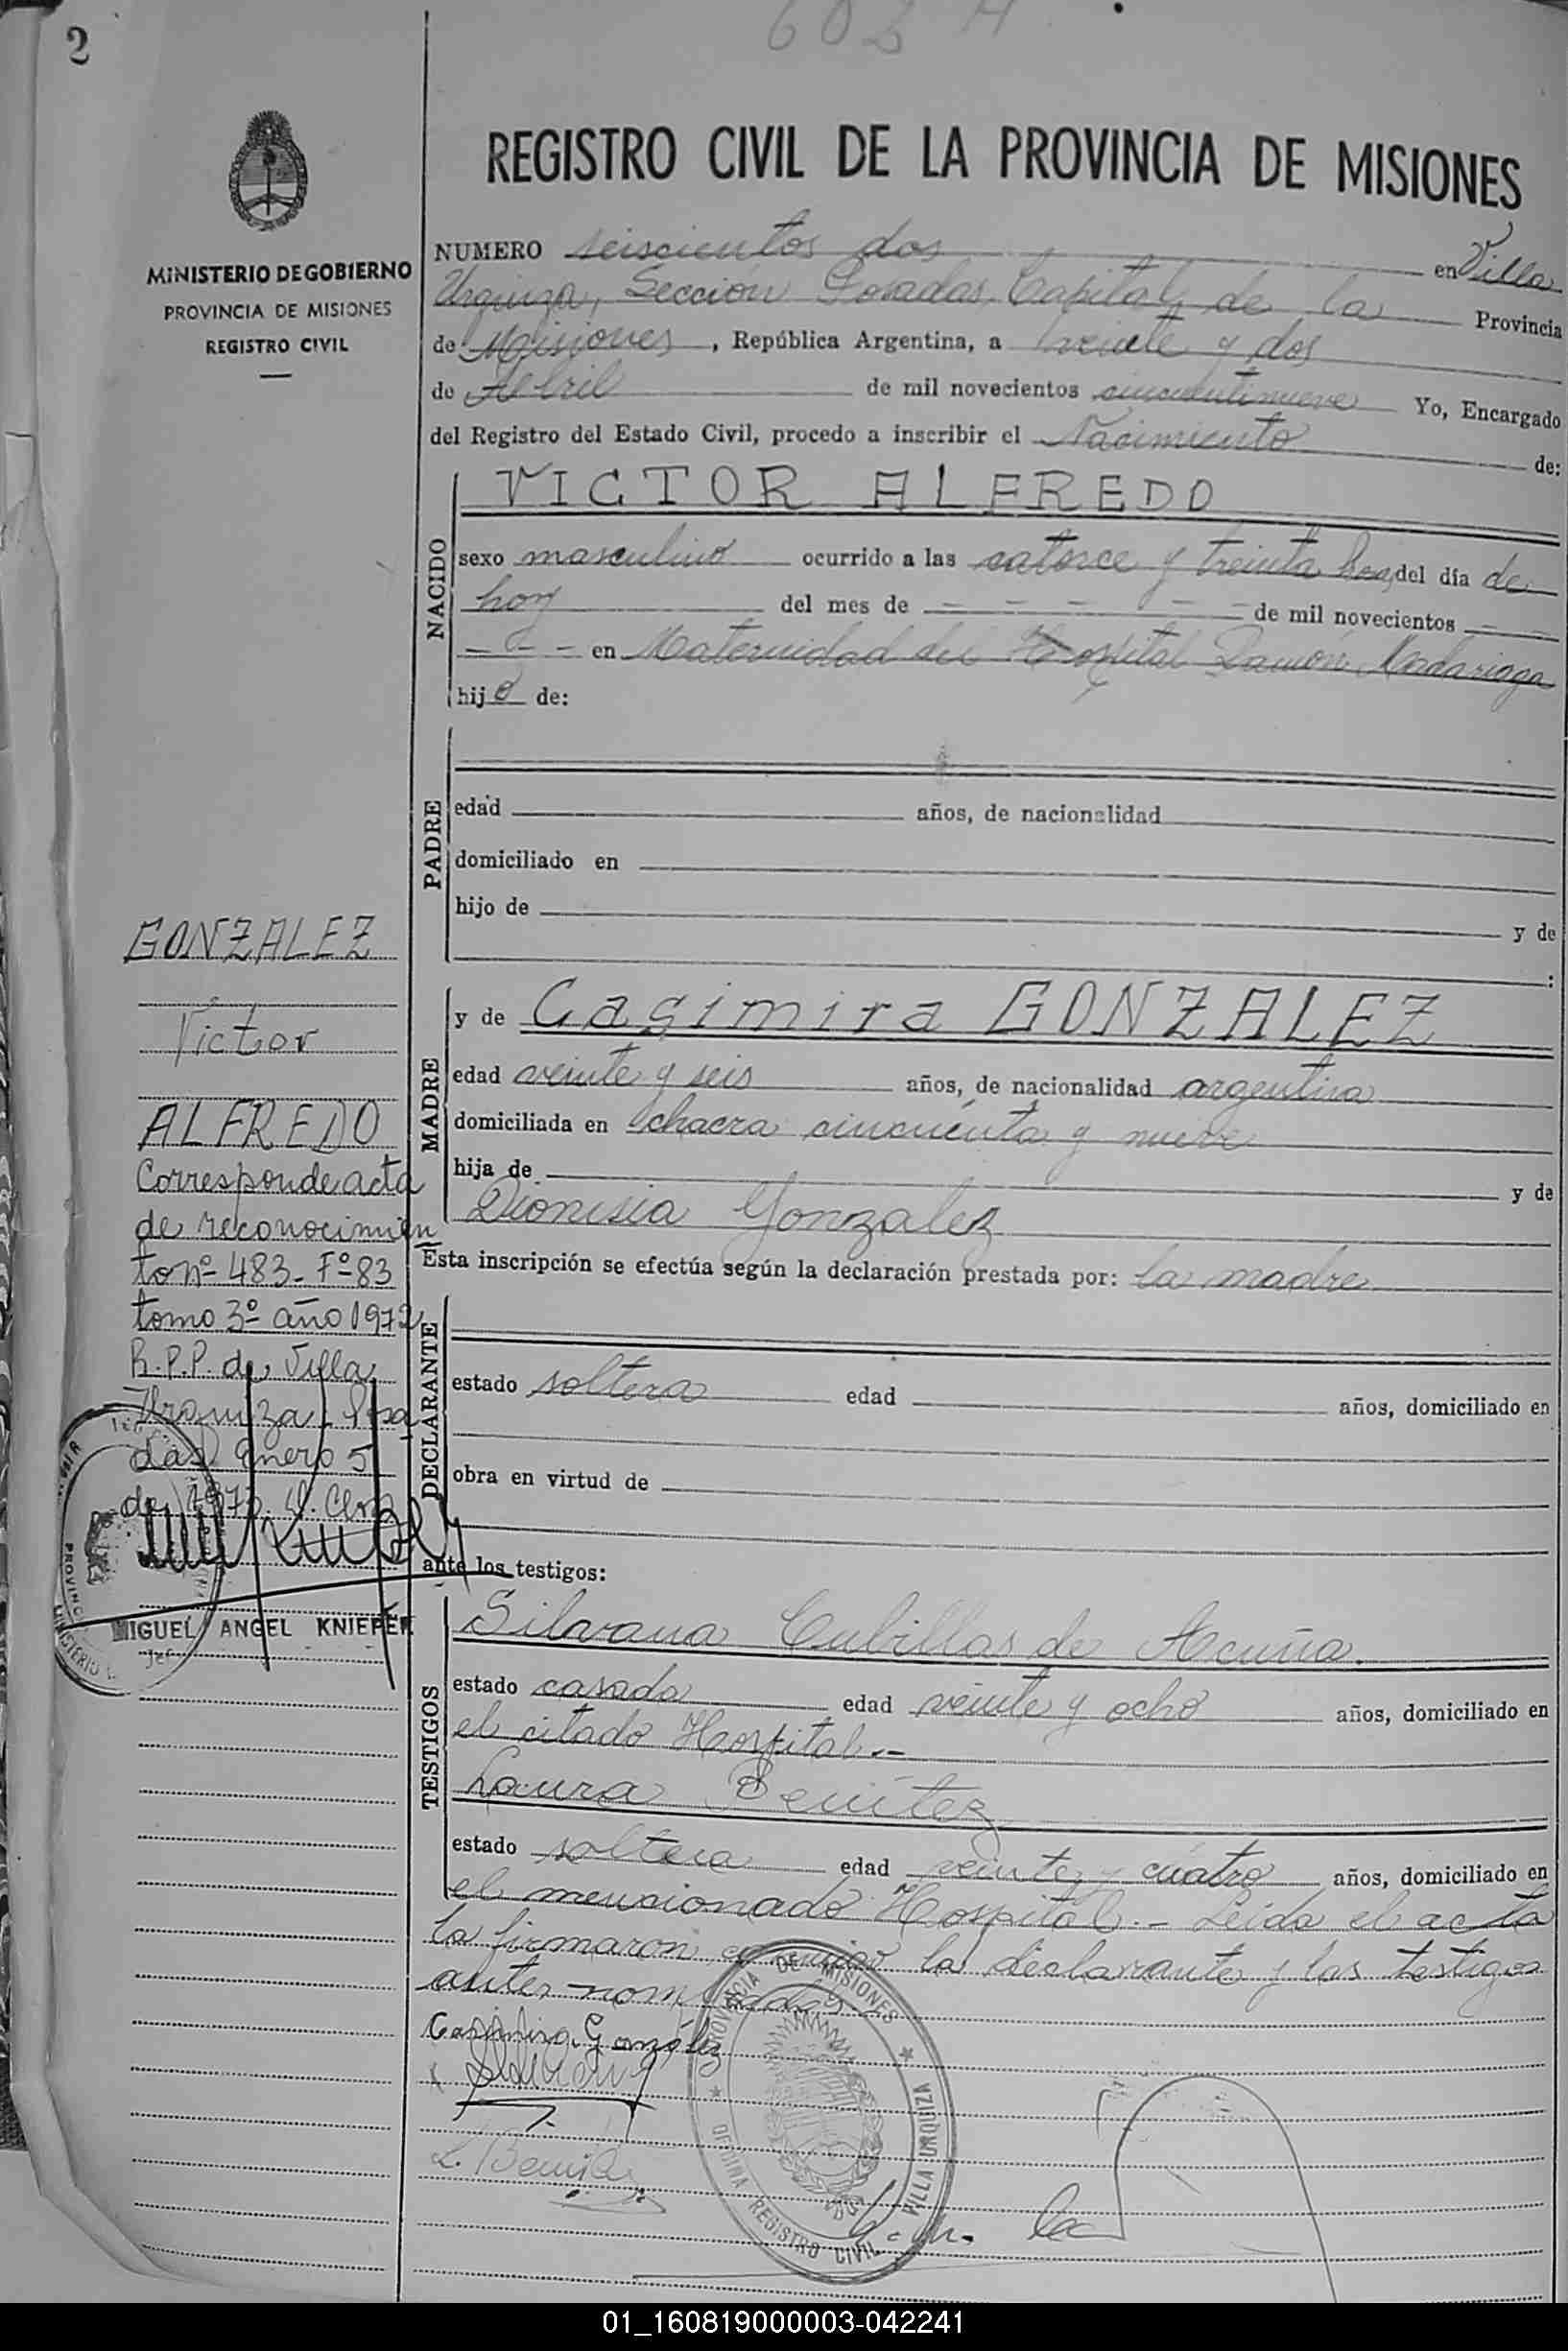 2
602 A
REGISTRO CIVIL DE LA PROVINCIA DE MISIONES
MINISTERIO DE GOBIERNO
PROVINCIA DE MISIONES
REGISTRO CIVIL
NUMERO seiscientos dos en Villa
Urquiza, Sección Posadas, Capital de la Provincia
de Misiones, República Argentina, a veinte y dos
de Abril de mil novecientos cincuentinueve Yo, Encargado
del Registro del Estado Civil, procedo a inscribir el Nacimiento de:
NACIDO
VICTOR ALFREDO
sexo masculino ocurrido a las catorce y treinta hs. del día de
hoy del mes de - - - - - de mil novecientos - -
- - - en Maternidad del Hospital Ramón Madariaga
hijo de:
PADRE
edad años, de nacionalidad
domiciliado en
hijo de y de
:
MADRE
y de Casimira GONZALEZ
edad veinte y seis años, de nacionalidad argentina
domiciliada en chacra cincuenta y nueve
hija de y de
Dionisia Gonzalez
Esta inscripción se efectúa según la declaración prestada por: la madre
DECLARANTE
estado soltera edad años, domiciliado en
obra en virtud de
ante los testigos:
TESTIGOS
Silvana Cubillas de Acuña.
estado casada edad veinte y ocho años, domiciliado en
el citado Hospital.-
Laura Benítez
estado soltera edad veinte y cuatro años, domiciliado en
el mencionado Hospital.- Leida el acta
la firmaron conmigo la declarante y los testigos
antes nombrados
Casimira Gonzalez
L. Benitez
PROVINCIA DE MISIONES
OFICINA REGISTRO CIVIL
VILLA URQUIZA
GONZALEZ
Victor
ALFREDO
Corresponde acta
de reconocimien
to nº 483- Fº 83
tomo 3º año 1972
R.P.P. de Villa
Urquiza Posa
das Enero 5
MIGUEL ANGEL KNIEPER
01_160819000003-042241